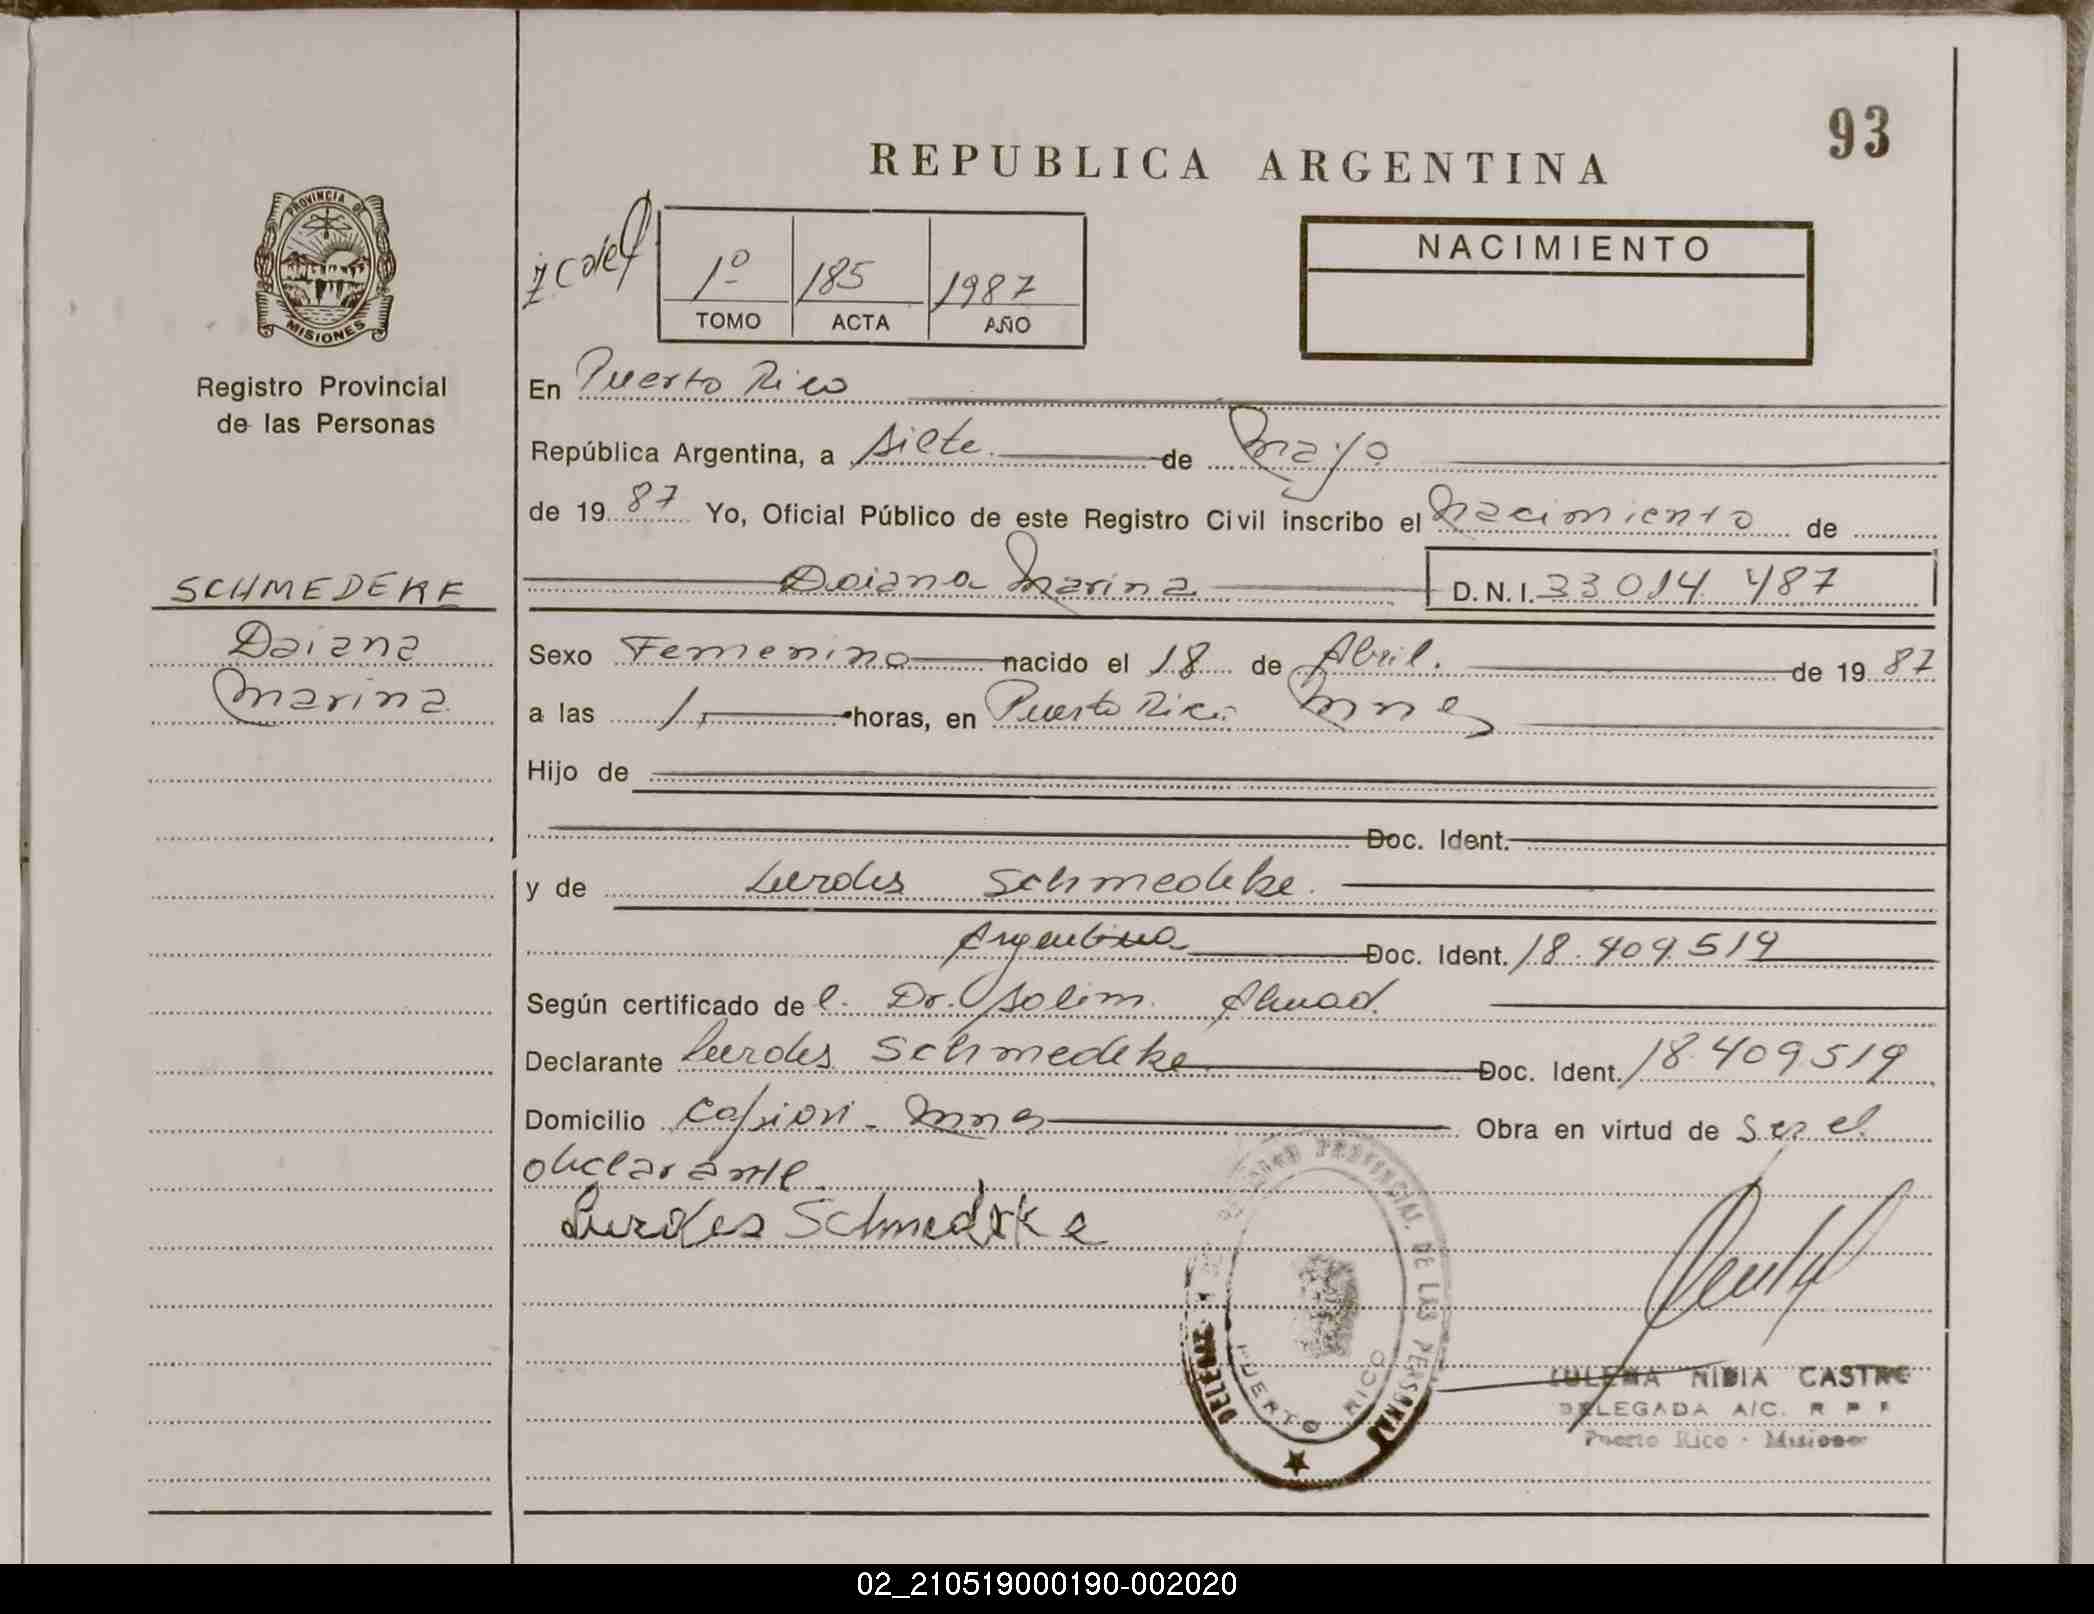 93
REPUBLICA ARGENTINA
PROVINCIA DE
MISIONES
Registro Provincial
de las Personas
1º 185 1987
TOMO ACTA AÑO
NACIMIENTO
En Puerto Rico
República Argentina, a siete de Mayo
de 1987 Yo, Oficial Público de este Registro Civil inscribo el Nacimiento de
Daiana Marina D.N.I. 33 014 487
SCHMEDEKE
Daiana
Marina
Sexo Femenino nacido el 18 de Abril. de 1987
a las 1, horas, en Puerto Rico Mnes
Hijo de
Doc. Ident.
y de Lurdes Schmedeke.
Argentina Doc. Ident. 18.409.519
Según certificado de l. Dr. Solim Ahmad.
Declarante Lurdes Schmedeke Doc. Ident. 18.409519
Domicilio Capiovi - Mnes Obra en virtud de ser el
declarante.
Lurdes Schmedeke
REGISTRO PROVINCIAL DE LAS PERSONAS
PUERTO RICO
ZULEMA NIDIA CASTRO
DELEGADA A/C. R P P
Puerto Rico - Misiones
02_210519000190-002020